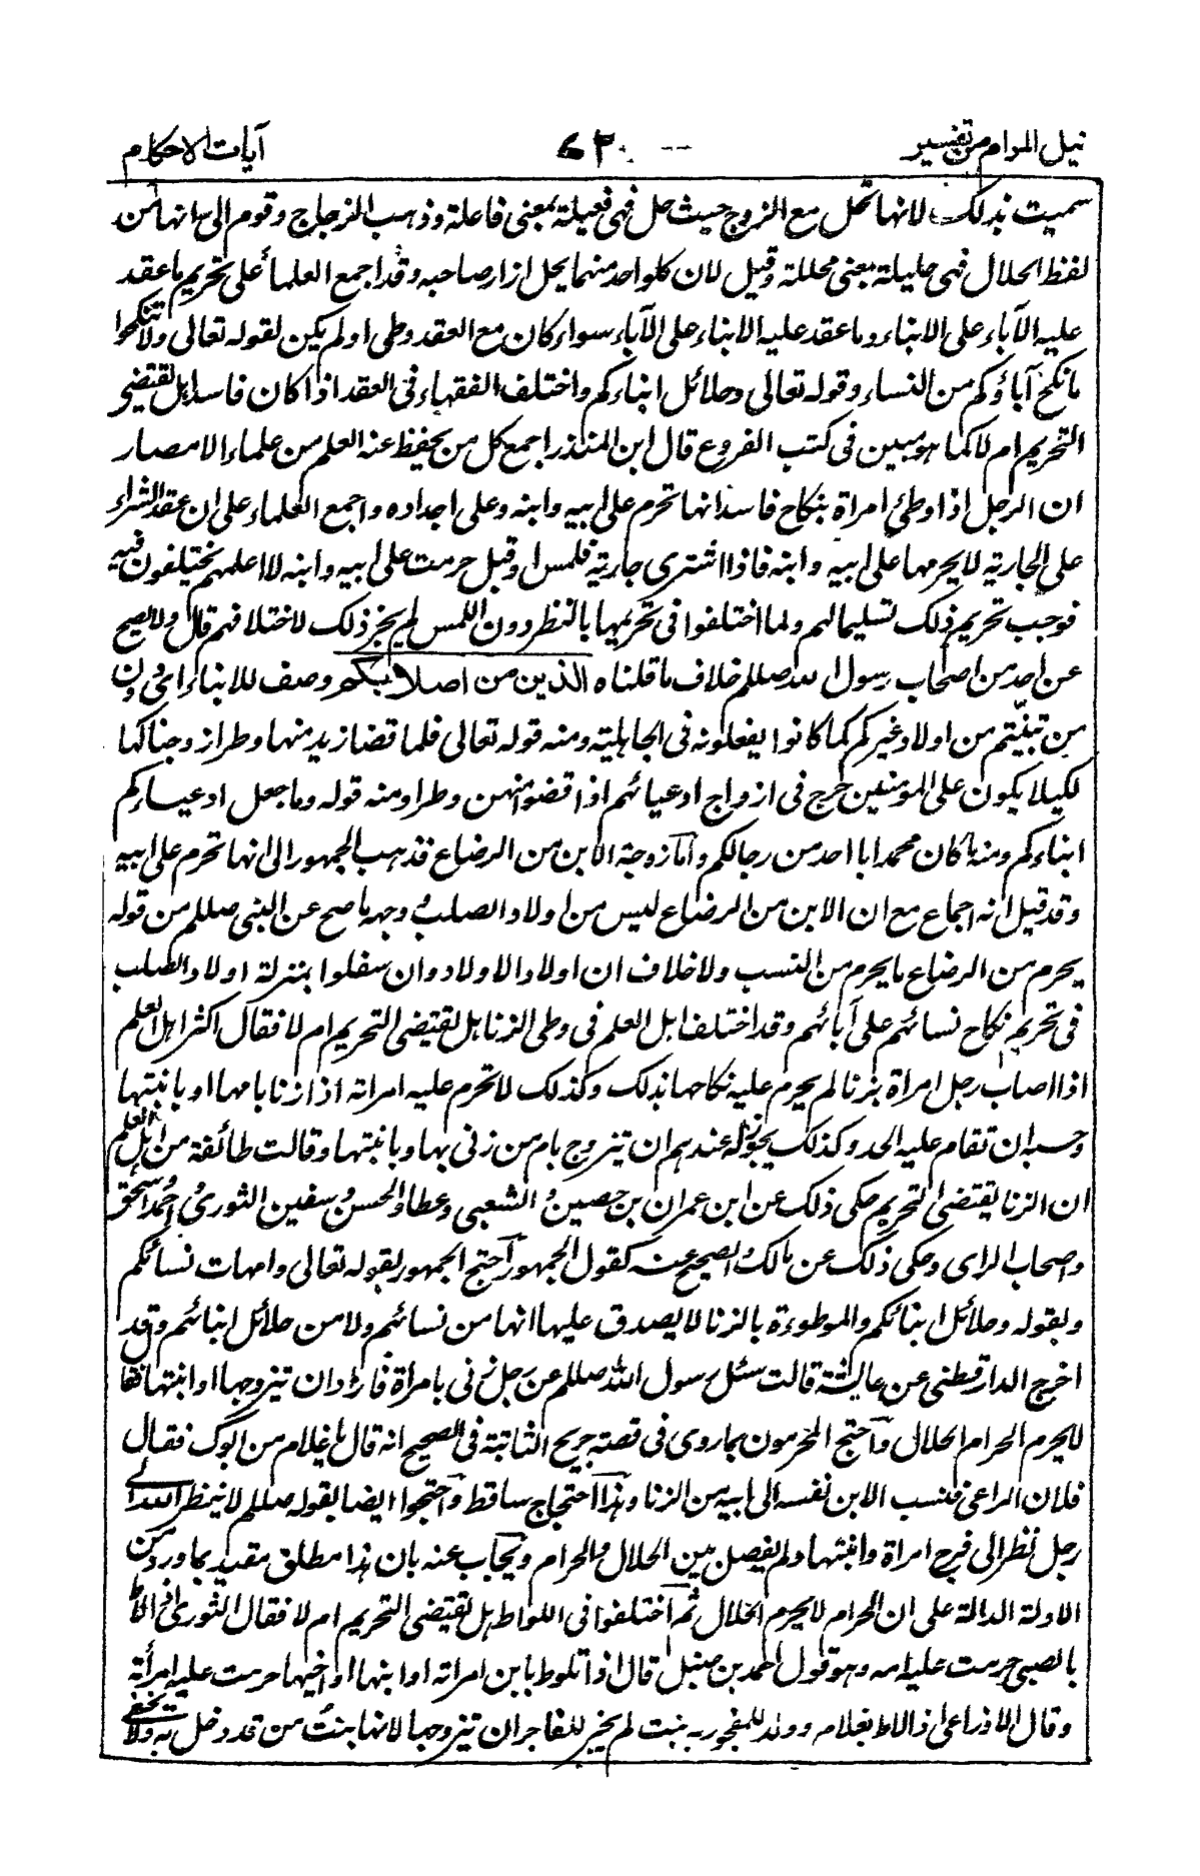 نيل المرام من تفسير
آيات الاحكام
سميت بذلك لانها تحل مع الزوج حيث حل فهى فعيلة بمعنى فاعلة وذهب الزجاج وقوم الى انها من
لفظ الحلال فهى حليلة بمعنى محللة وقيل لان كلواحد منهما يحل ازار صاحبه وقد اجمع العلماء على تحريم ما عقد
عليه الآباء على الابناء وما عقد عليه الابناء على الآباء سواء كان مع العقد وطى اولم يكن لقوله تعالى ولا تنكحوا
ما نكح آباؤكم من النساء وقوله تعالى وحلائل ابناءكم واختلف الفقهاء فى العقد اذا كان فاسدا هل يقتضى
التحريم ام لا كما هو مبين فى كتب الفروع قال ابن المنذر اجمع كل من يحفظ عنه العلم من علماء الامصار
ان الرجل اذا وطئ امراة بنكاح فاسد انها تحرم على ابيه وابنه وعلى اجداده واجمع العلماء على ان عقد الشراء
على الجارية لا يحرمها على ابيه وابنه فاذا اشترى جارية فلمس او قبل حرمت على ابيه وابنه لا اعلمهم يختلفون فيه
فوجب تحريم ذلك تسليما لهم ولما اختلفوا فى تحريمها بالنظر دون اللمس لم يجز ذلك لاختلافهم قال ولا يصح
عن احد من اصحاب رسول الله صللم خلاف ما قلناه الذين من اصلابكم وصف للابناء اى دون
من تبنيتم من اولاد غيركم كما كانوا يفعلونه فى الجاهلية ومنه قوله تعالى فلما قضا زيد منها وطرا زوجناكها
لكيلا يكون على المؤمنين حرج فى ازواج ادعيائهم اذا قضوا منهن وطرا ومنه قوله وما جعل ادعياءكم
ابناءكم ومنه ما كان محمد ابا احد من رجالكم واما زوجة الابن من الرضاع فذهب الجمهور الى انها تحرم على ابيه
وقد قيل انه اجماع مع ان الابن من الرضاع ليس من اولاد الصلب ووجهه ما صح عن النبى صللم من قوله
يحرم من الرضاع ما يحرم من النسب ولا خلاف ان اولاد الاولاد وان سفلوا بمنزلة اولاد الصلب
فى تحريم نكاح نسائهم على آبائهم وقد اختلف اهل العلم فى وطى الزنا هل يقتضى التحريم ام لا فقال اكثر اهل العلم
اذا اصاب رجل امراة بزنا لم يحرم عليه نكاحها بذلك وكذلك لا تحرم عليه امراته اذا زنا بامها او بابنتها
وحسبه ان تقام عليه الحد وكذلك يجوز له عندهم ان تيزوج بام من زنى بها وبابنتها وقالت طائفة من اهل العلم
ان الزنا يقتضى التحريم حكى ذلك عن ابن عمران بن حصين و الشعبى وعطا والحسن و سفين الثورى و احمد و اسحق
واصحاب الراى وحكى ذلك عن مالك و الصحيح عنه كقول الجمهور احتج الجمهور بقوله تعالى وامهات نسائكم
وبقوله وحلائل ابنائكم والموطوءة بالزنا لا يصدق عليها انها من نسائهم ولا من حلائل ابنائهم وقد
اخرج الدارقطنى عن عائشة قالت سئل رسول الله صللم عن رجل زنى بامراة فاراد ان تيزوجها او ابنتها فقا
لا يحرم الحرام الحلال واحتج المحرمون بما روى فى قصة جريج الثابتة فى الصحيح انه قال يا غلام من ابوك فقال
فلان الراعى فنسب الابن نفسه الى ابيه من الزنا وهذا احتجاج ساقط واحتجوا ايضا بقوله صللم لا ينظر الله الى
رجل نظر الى فرج امراة وابنتها ولم يفصل بين الحلال والحرام ويجاب عنه بان هذا مطلق مقيد بما ورد من
الادلة الدالة على ان الحرام لا يحرم الحلال ثم اختلفوا فى اللواط هل يقتضى التحريم ام لا فقال الثورى اذا لاط
بالصبى حرمت عليه امه وهو قول احمد بن حنبل قال اذا تلوط بابن امراته او ابنها او اخيها حرمت عليه امرأته
وقال الاوزاعى اذا لاط بغلام وولد للمفجور به بنت لم يجز للفاجر ان تيزوجها لانها بنت من قد دخل به ولا يخفى